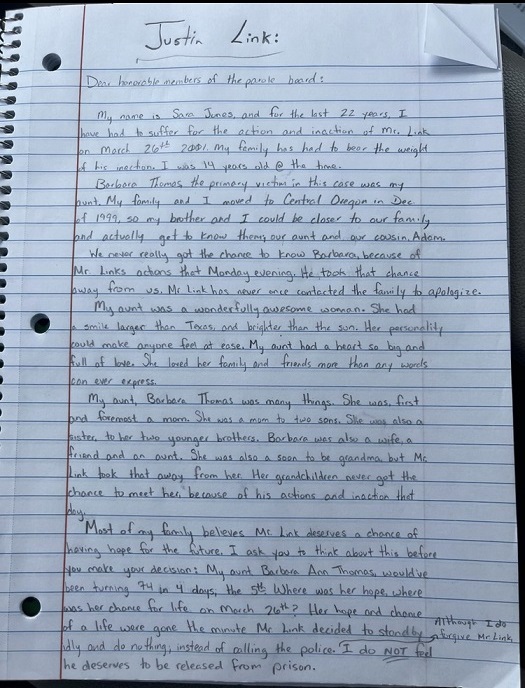 Justin Link:
Dear honorable members of the parole board:
My name is Sara Jones, and for the last 22 years, I
have had to suffer for the action and inaction of Mr. Link
on March 26th 2001. My family has had to bear the weight
of his inaction. I was 14 years old @ the time.
Barbara Thomas the primary victim in this case was my
aunt. My family and I moved to Central Oregon in Dec
of 1999, so my brother and I could be closer to our family
and actually get to know them; our aunt and our cousin, Adam.
We never really got the chance to know Barbara, because of
Mr. Links actions that Monday evening. He took that chance
away from us. Mr Link has never once contacted the family to apologize.
My aunt was a wonderfully awesome woman. She had
a smile larger than Texas, and brighter than the sun. Her personality
could make anyone feel at ease. My aunt had a heart so big and
full of love. She loved her family and friends more than any words
can ever express.
My aunt, Barbara Thomas was many things. She was, first
and foremost a mom. She was a mom to two sons. She was also a
sister, to her two younger brothers. Barbara was also a wife, a
friend and an aunt. She was also a soon to be grandma, but Mr
Link took that away from her. Her grandchildren never got the
chance to meet her, because of his actions and inaction that
day.
Most of my family believes Mr Link deserves a chance of
having hope for the future. I ask you to think about this before
you make your decision: My aunt Barbara Ann Thomas, would've
been turning 74 in 4 days, the 5th. Where was her hope, where
was her chance for life on March 26th? Her hope and chance
of a life were gone the minute Mr Link decided to standby
idly and do nothing, instead of calling the police. I do NOT feel
he deserves to be released from prison.
Although I do
forgive Mr. Link